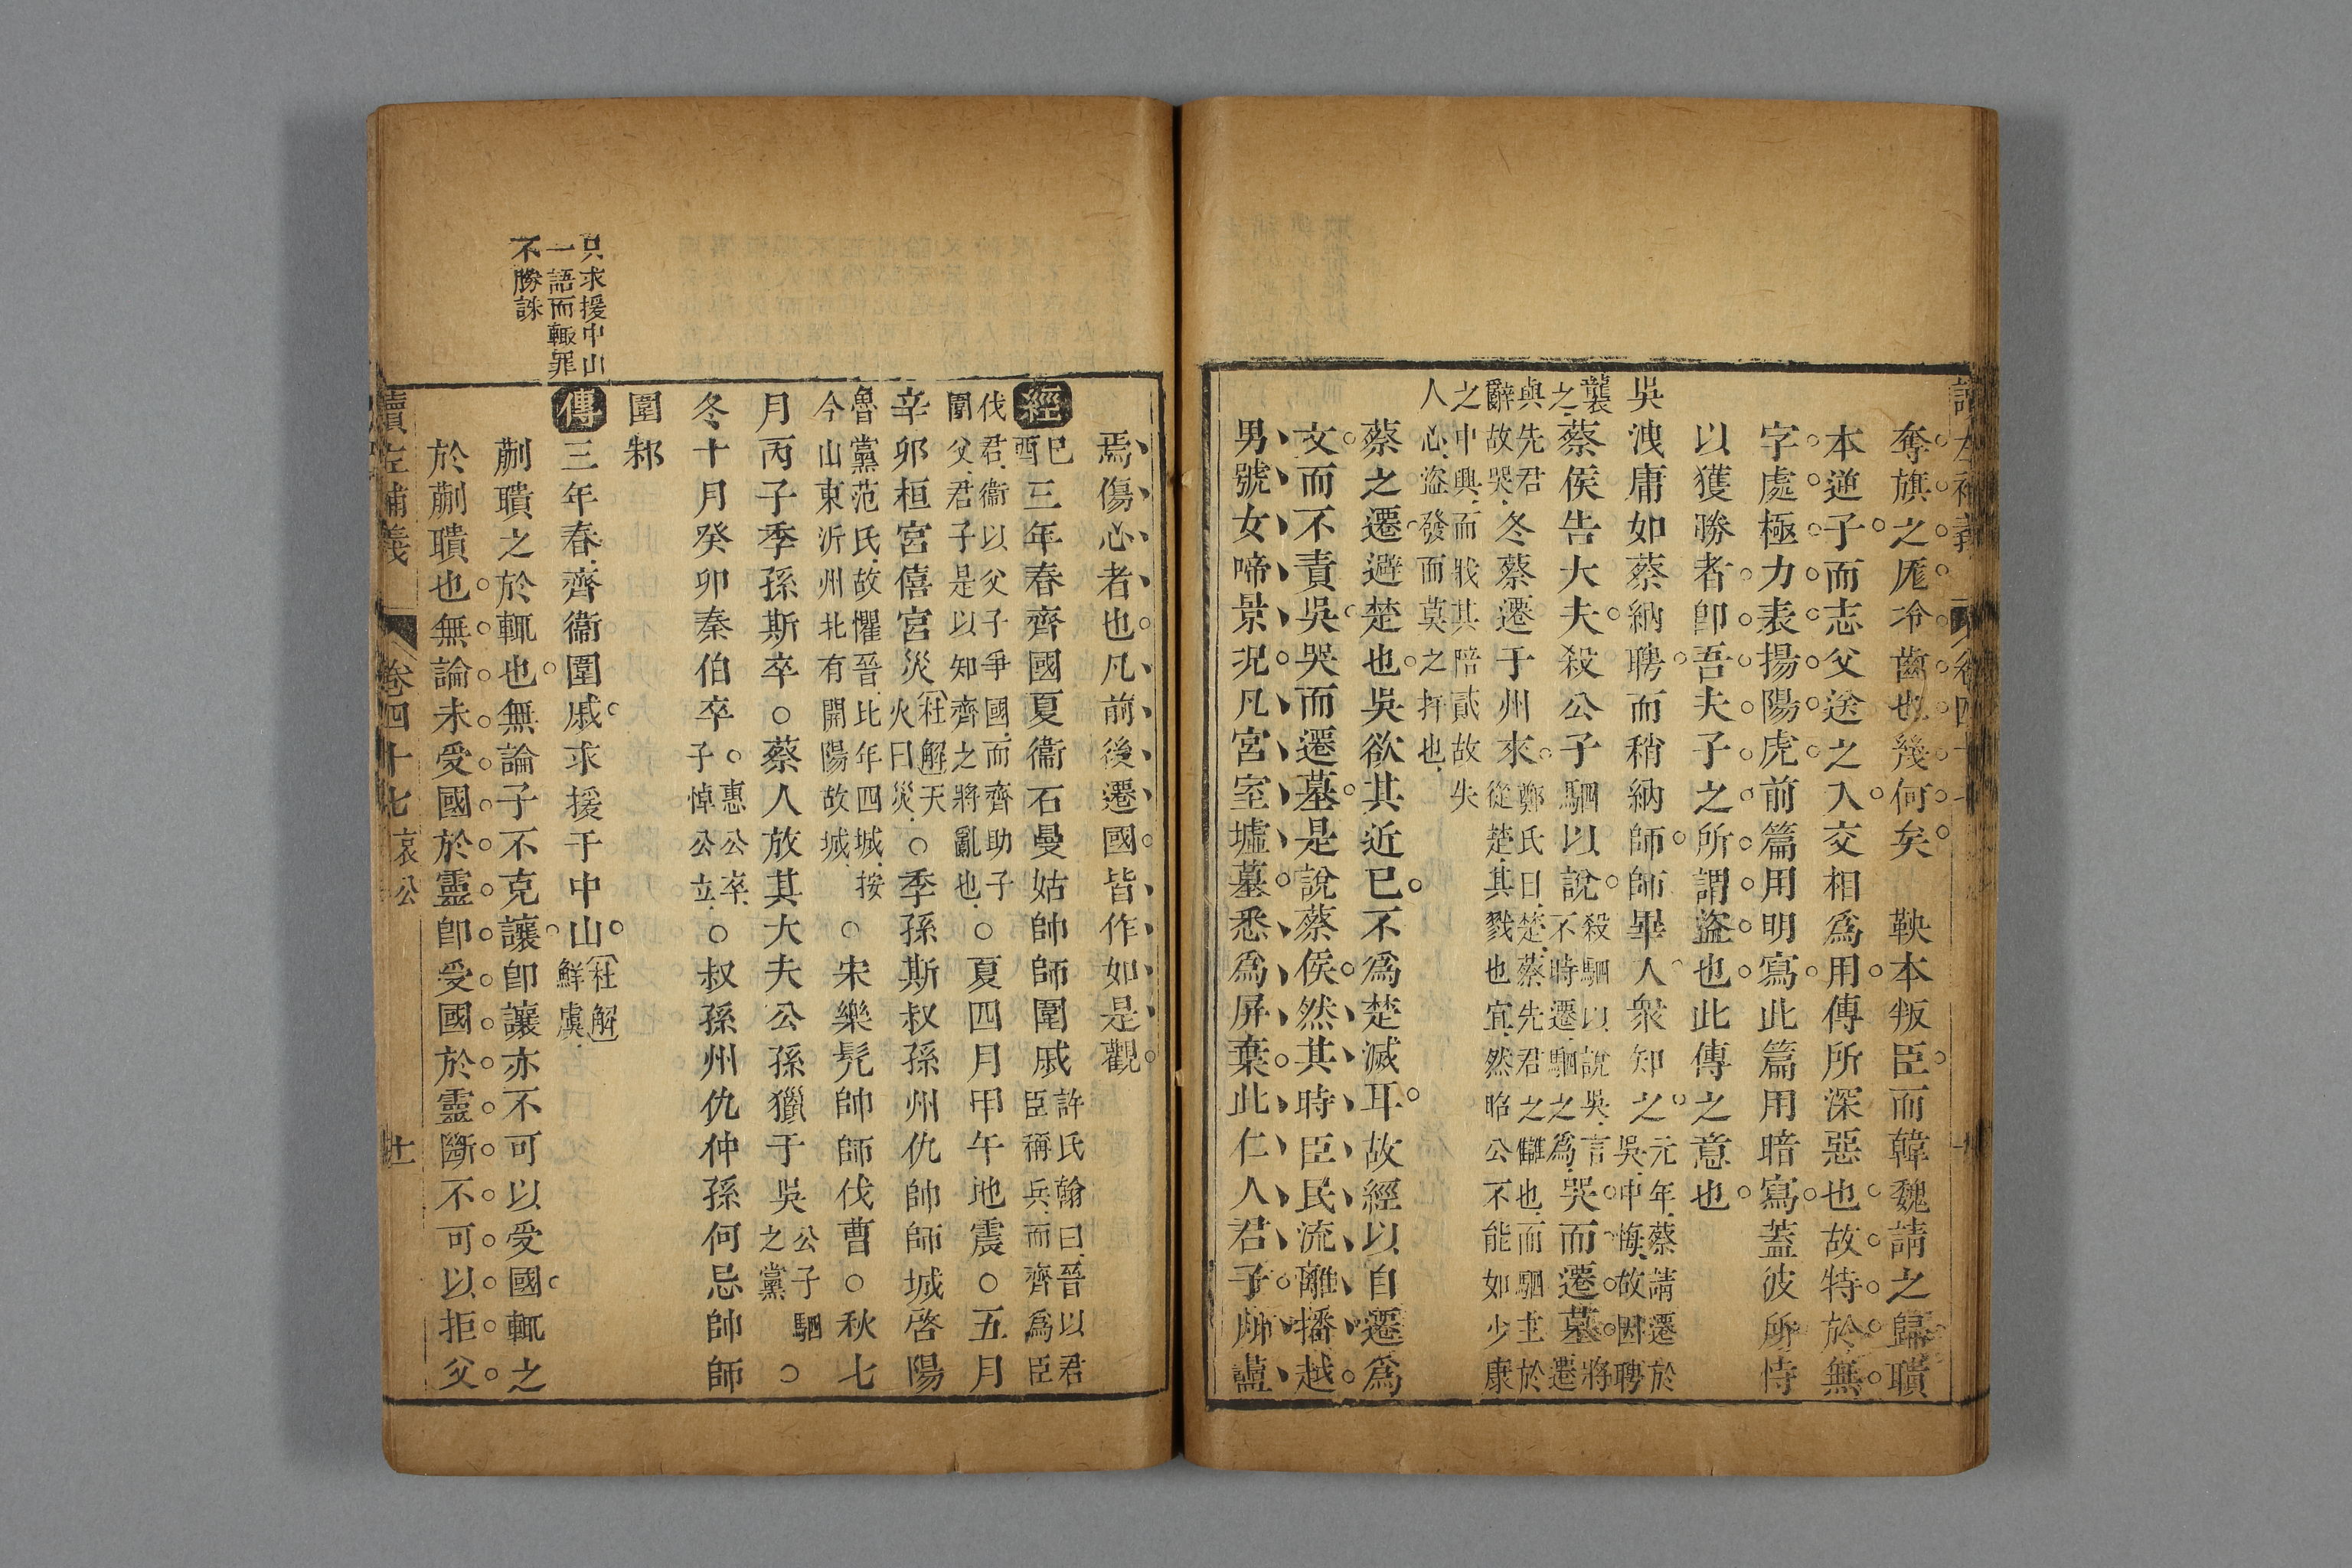 奪旗之厖冷齒也幾何矣　鞅本叛臣而韓魏請之歸聵
本逆子而志父送之入交相爲用傳所深惡也故特於無
字處極力表揚陽虎前篇用明寫此篇用暗寫蓋彼所恃
以獲勝者卽吾夫子之所謂盜也此傳之意也
吳洩庸如蔡納聘而稍納師師畢入衆知之元年蔡請遷於吳中悔故因聘
襲之蔡侯告大夫殺公子駟以說殺駟以說吳言不時遷駟之爲哭而遷墓將遷
與先君辭故哭冬蔡遷于州來鄭氏曰楚蔡先君之讎也而駟主於從楚其戮也宜然昭公不能如少康
之中興而戕其陪貳故失人心盜發而莫之扞也
蔡之遷避楚也吳欲其近已不爲楚滅耳故經以自遷爲
文而不責吳哭而遷墓是說蔡侯然其時臣民流離播越
男號女啼景况凡宮室墟墓悉爲屏棄此仁人君子所藎
焉傷心者也凡前後遷國皆作如是觀
經己酉三年春齊國夏衞石曼姑帥師圍戚許氏翰曰晉以君臣稱兵而齊爲臣
伐君衞以父子爭國而齊助子圍父君子是以知齊之將亂也○夏四月甲午地震○五月
辛卯桓宮僖宮災杜解天火曰災○季孫斯叔孫州仇帥師城啓陽
魯黨范氏故懼晉比年四城按今山東沂州北有開陽故城○宋樂髡帥師伐曹○秋七
月丙子季孫斯卒○蔡人放其大夫公孫獵于吳公子駟之黨○
冬十月癸卯秦伯卒惠公卒子悼公立○叔孫州仇仲孫何忌帥師
圍邾
只求援中山
一語而輒罪
不勝誅
傳三年春齊衞圍戚求援于中山杜解鮮虞
蒯聵之於輒也無論子不克讓卽讓亦不可以受國輒之
於蒯聵也無論未受國於靈卽受國於靈斷不可以拒父
讀左補義　卷四十七哀公　廿